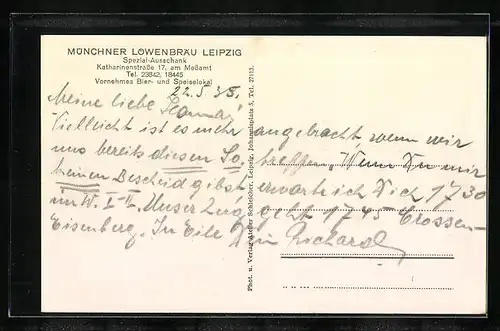 MÜNCHNER LÖWENBRÄU LEIPZIG
Spezial-Ausschank
Katharinenstraße 17, am Meßamt
Tel. 23842, 18445
Vornehmes Bier- und Speiselokal
22.5.35.
Meine liebe
Vielleicht ist es mehr angebracht, wenn wir
uns bereits diesen So. treffen. Wenn Du mir
keinen Bescheid gibst erwarte ich Dich 17 30
im W. I-II. Unser Zug geht 17 45 Crossen-
Eisenberg. In Eile Dein Richard
Phot. u. Verlag Atelier Schleicher, Leipzig, Johannisplatz 5, Tel. 27113.